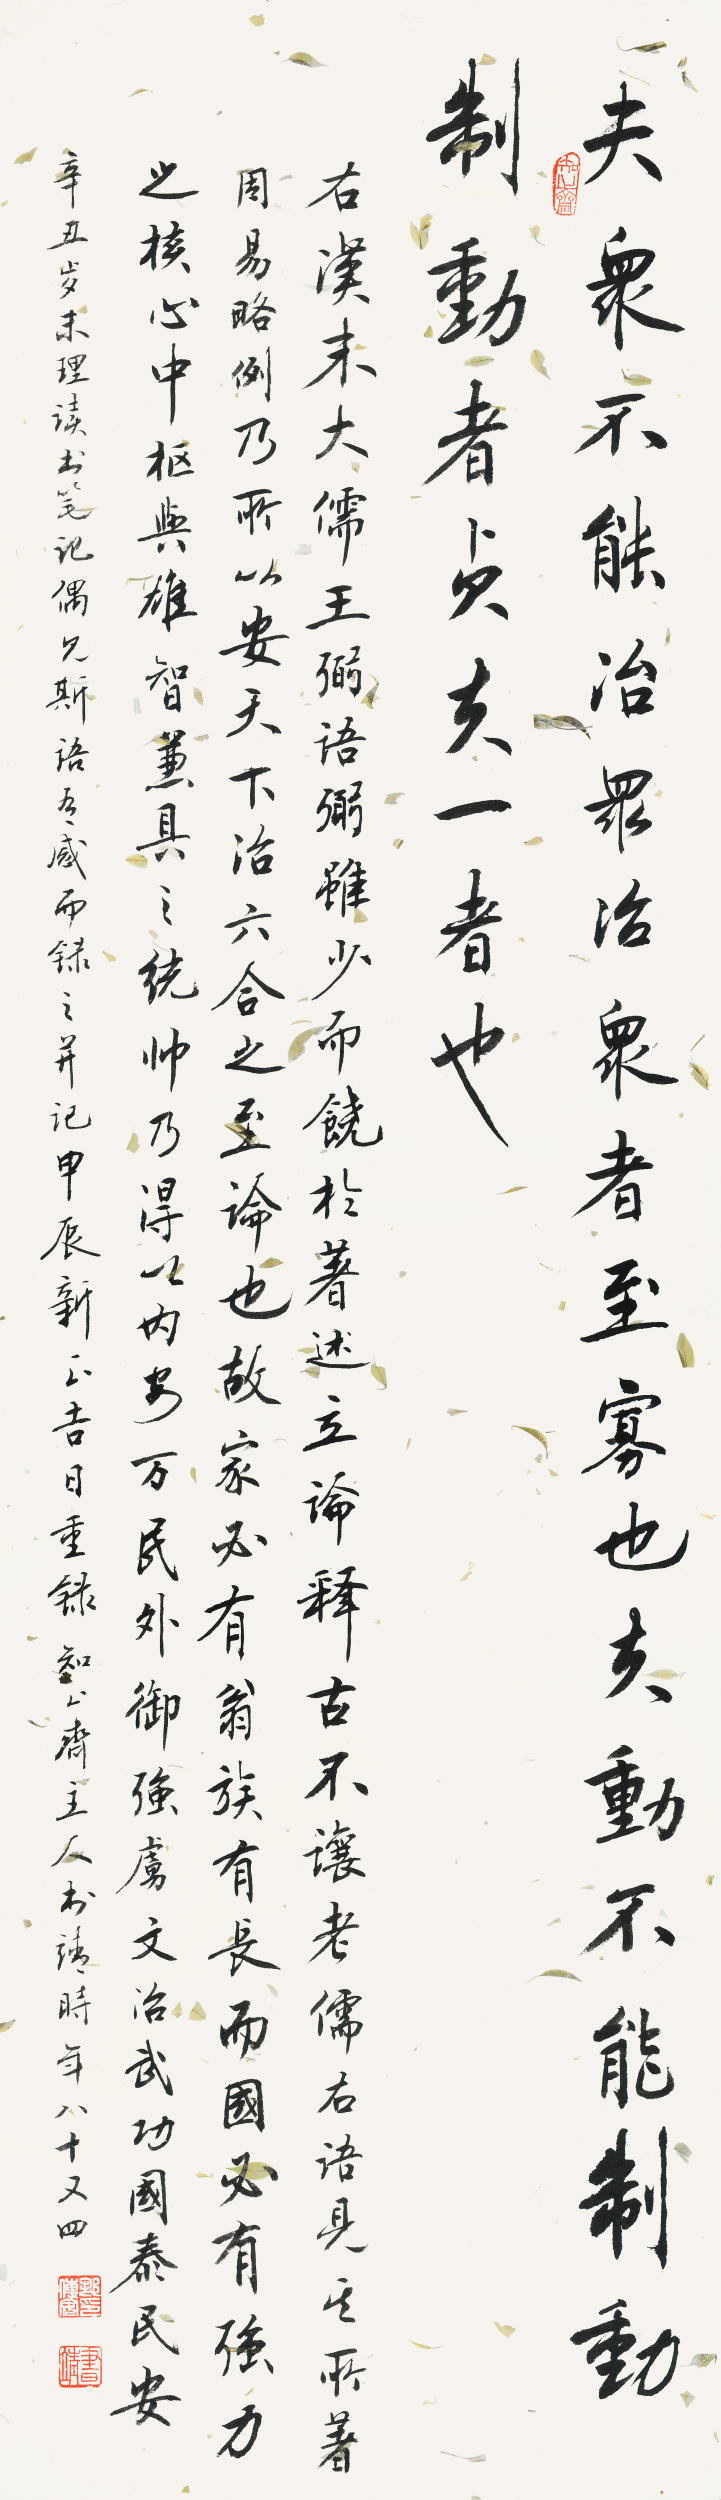 夫眾不能治眾治眾者至寡也夫動不能制動
制動者贞夫一者也
右漢末大儒王弼語弼雖少而饒於著述立論释古不讓老儒右語見其所著
周易略例乃所以安天下治六合之至論也故家必有翁族有長而國必有強力
之核心中枢與雄智兼具之统帅乃得以内安万民外御強虜文治武功國泰民安
辛丑岁末理读书笔记偶见斯語有感而録之并记甲辰新正吉日重録智公齋主人书於靖時年八十又四